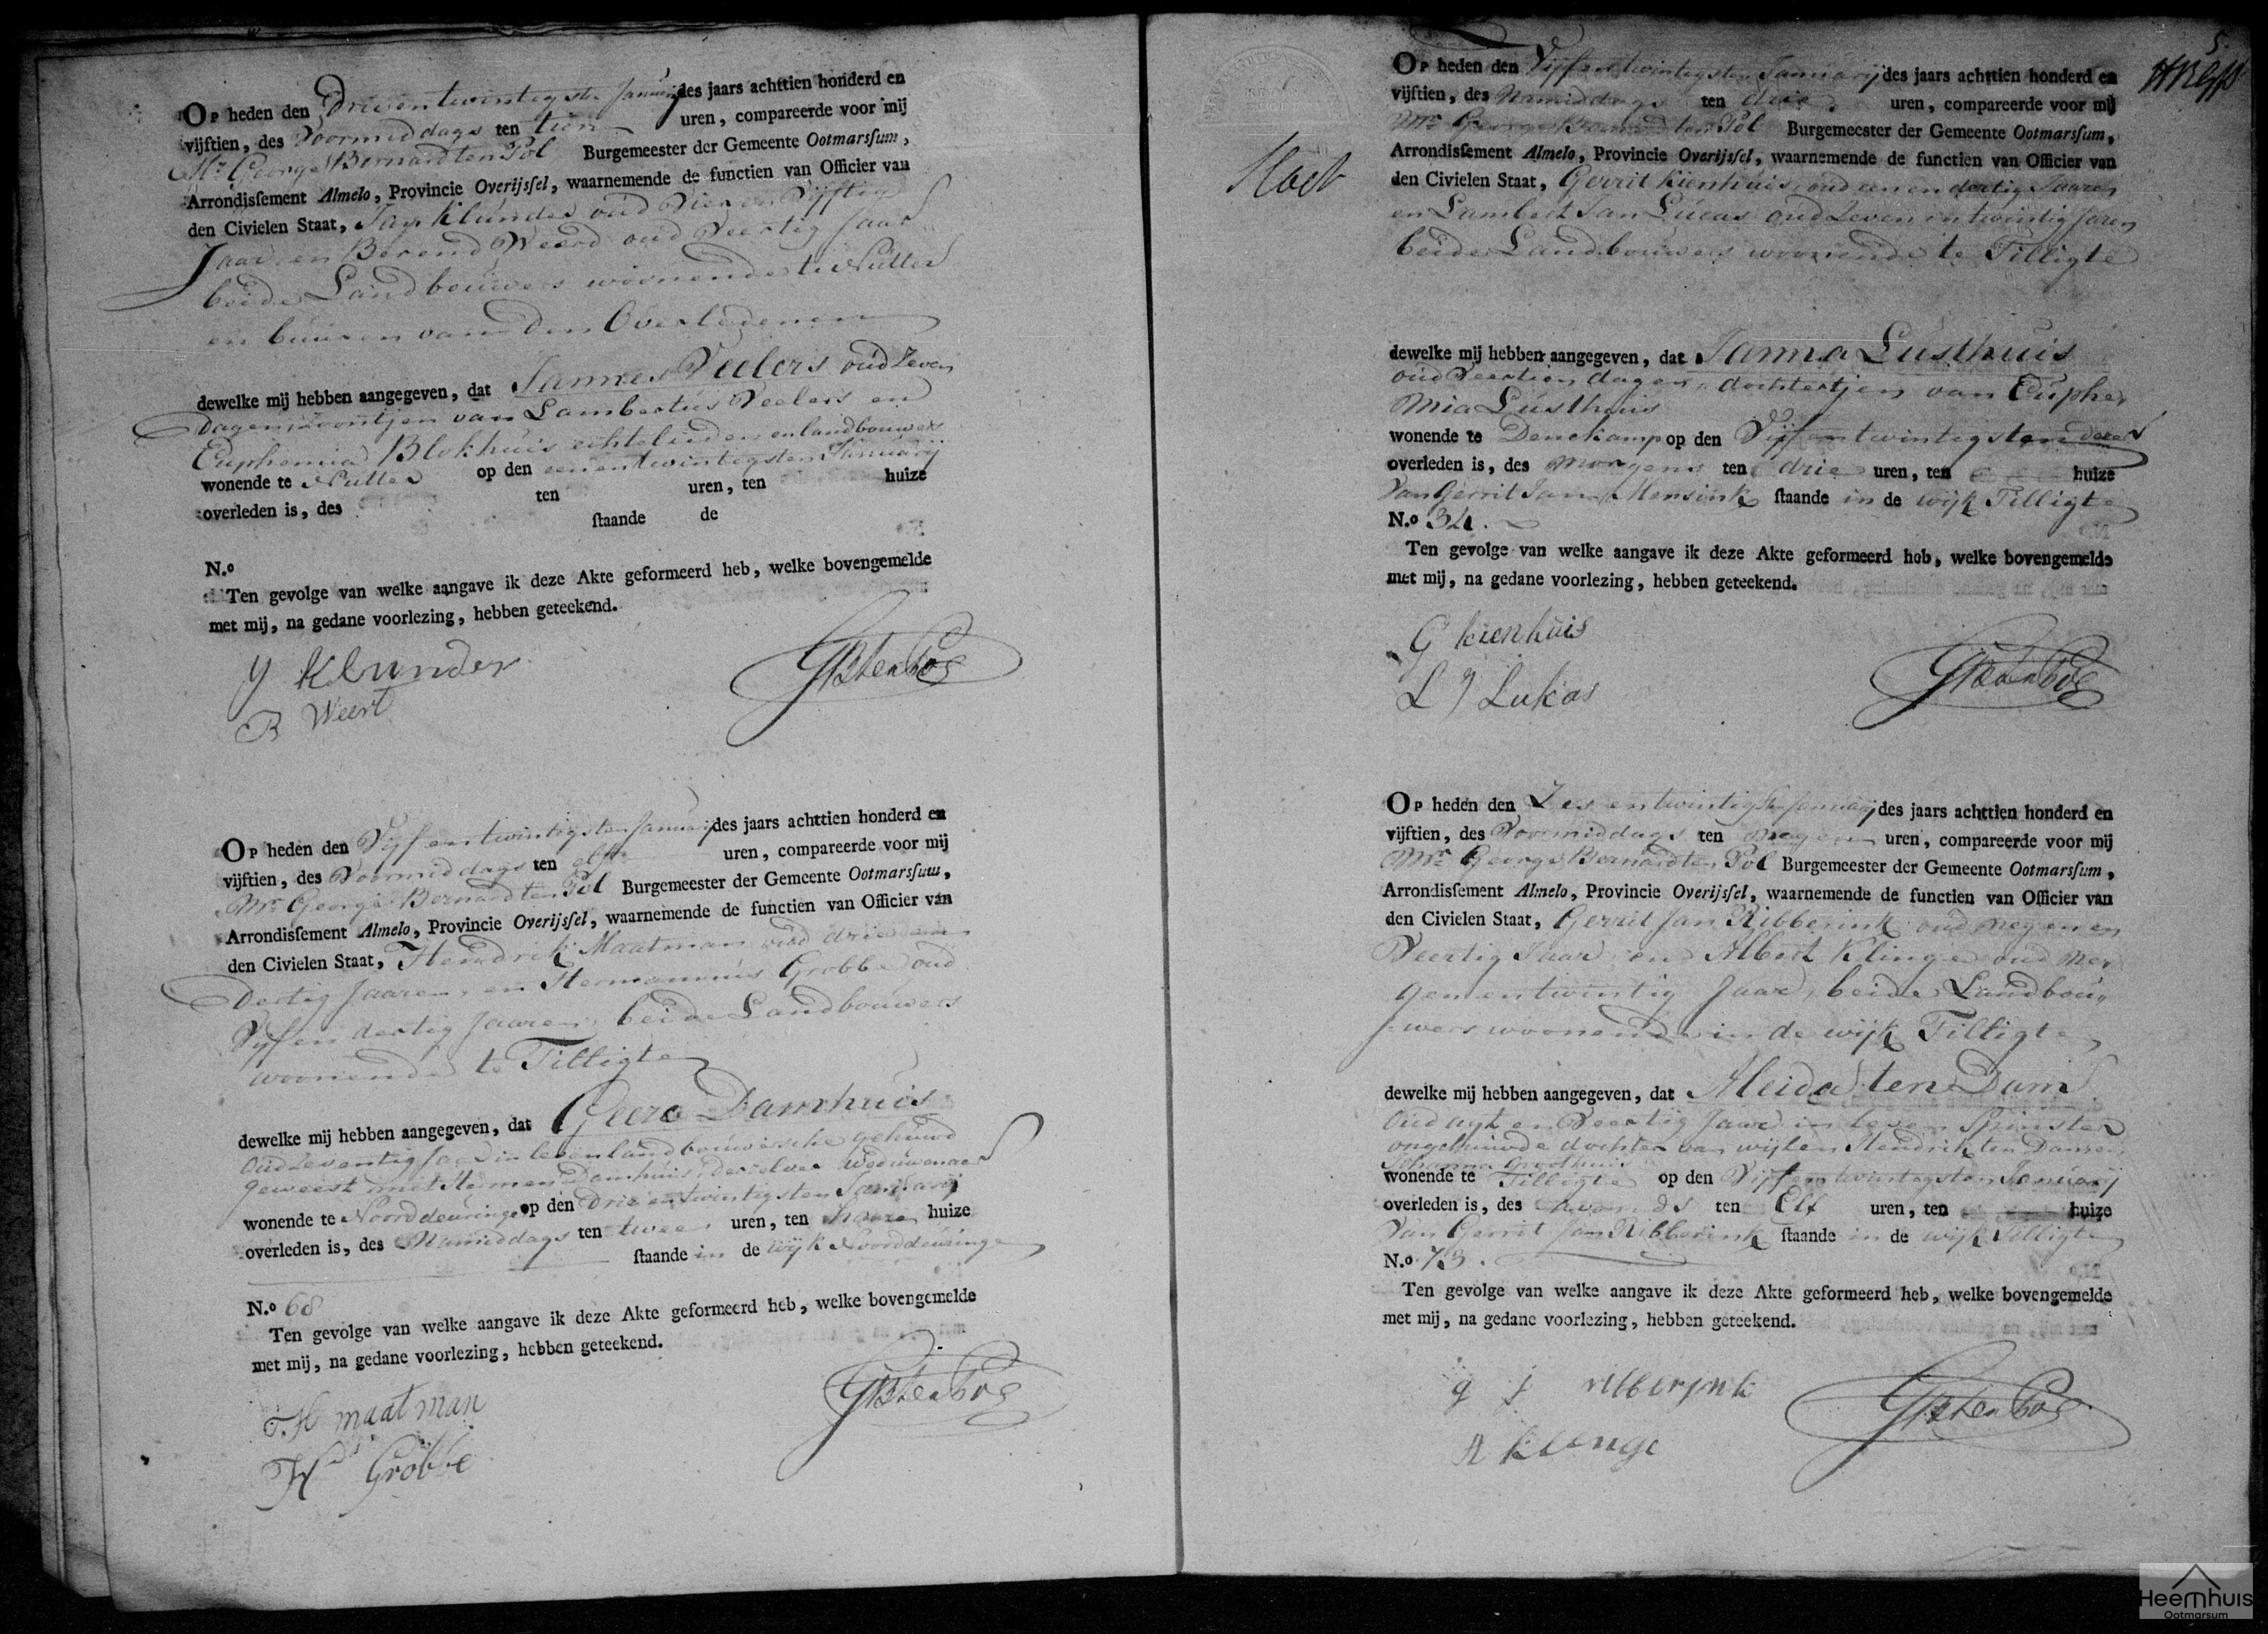 Op heden den Drie en twintigste Januarij des jaars achttien honderd en
vijftien, des Voormiddags ten tien uren, compareerde voor mij
Mr. George Bernard ten Pol Burgemeester der Gemeente Ootmarssum,
Arrondissement Almelo, Provincie Overijssel, waarnemende de functien van Officier van
den Civielen Staat, Jan Klunder oud Vier en Vijftig
Jaar en Berend Weerd oud Veertig Jaar
beide Landbouwers woonende te Nutter
en buuren van den Overledenen
dewelke mij hebben aangegeven, dat Jannes Veelers oud Zeven
Dagen, Zoontjen van Lambertus Veelers en
Euphemia Blokhuis echtelieden en landbouwers
wonende te Nutter op den eenentwintigsten Januarij
overleden is, des ten uren, ten huize
staande de
N.o
Ten gevolge van welke aangave ik deze Akte geformeerd heb, welke bovengemelde
met mij, na gedane voorlezing, hebben geteekend.
J Klunder
B Weert
GB ten Pol
Op heden den Vijf en twintigsten Januarij des jaars achttien honderd en
vijftien, des Voormiddags ten elf uren, compareerde voor mij
Mr. George Bernard ten Pol Burgemeester der Gemeente Ootmarssum,
Arrondissement Almelo, Provincie Overijssel, waarnemende de functien van Officier van
den Civielen Staat, Hendrik Maatman oud drie en
Dertig Jaaren, en Hermannus Grobbe oud
Vijf en dertig Jaaren, beide Landbouwers
woonende te Tilligte
dewelke mij hebben aangegeven, dat Geere Damhuis
Oud Zeventig Jaar in leven landbouwersche gehuwd
geweest met Hermen Damhuis, derzelver weduwenaer
wonende te Noorddeuringe op den Drie entwintigsten Januarij
overleden is, des Namiddags ten twee uren, ten haare huize
staande in de wijk Noorddeuringe
N.o 68
Ten gevolge van welke aangave ik deze Akte geformeerd heb, welke bovengemelde
met mij, na gedane voorlezing, hebben geteekend.
H maatman
Hs Grobbe
GB ten Pol
5.
Op heden den Vijf en twintigsten Januarij des jaars achttien honderd en
vijftien, des Namiddags ten drie uren, compareerde voor mij
Mr. George Bernard ten Pol Burgemeester der Gemeente Ootmarssum,
Arrondissement Almelo, Provincie Overijssel, waarnemende de functien van Officier van
den Civielen Staat, Gerrit Kienhuis, oud een en dertig Jaaren
en Lambert Jan Lucas oud Zeven en twintig Jaren
beide Landbouwers woonende te Tilligte
dewelke mij hebben aangegeven, dat Janna Lusthuis
oud Veertien dagen, dochtertjen van Euphe,,
mia Lusthuis
wonende te Denekamp op den Vijf en twintigsten dezer
overleden is, des morgens ten drie uren, ten huize
van Gerrit Jan Mensink staande in de wijk Tilligte
N.o 34.
Ten gevolge van welke aangave ik deze Akte geformeerd heb, welke bovengemelde
met mij, na gedane voorlezing, hebben geteekend.
G kienhuis
L J Lukas
GB ten Pol
Op heden den Zes entwintigsten Januarij des jaars achttien honderd en
vijftien, des Voormiddags ten negen uren, compareerde voor mij
Mr. George Bernard ten Pol Burgemeester der Gemeente Ootmarssum,
Arrondissement Almelo, Provincie Overijssel, waarnemende de functien van Officier van
den Civielen Staat, Gerrit Jan Ribberink oud negen en
Veertig Jaar, en Albert Klinge oud ne,,
gen entwintig Jaar, beide Landbou,,
wers woonende in de wijk Tilligte
dewelke mij hebben aangegeven, dat Aleida ten Dam
Oud agt en Veertig Jaar in leven Spinster
ongehuwde dochter van wijlen Hendrik ten Dam en
Johanna Groothuis
wonende te Tilligte op den Vijf entwintigsten Januarij
overleden is, des avonds ten Elf uren, ten huize
van Gerrit Jan Ribberink staande in de wijk Tilligte
N.o 73.
Ten gevolge van welke aangave ik deze Akte geformeerd heb, welke bovengemelde
met mij, na gedane voorlezing, hebben geteekend.
g j ribberink
A klinge
GB ten Pol
Heemhuis
Ootmarsum